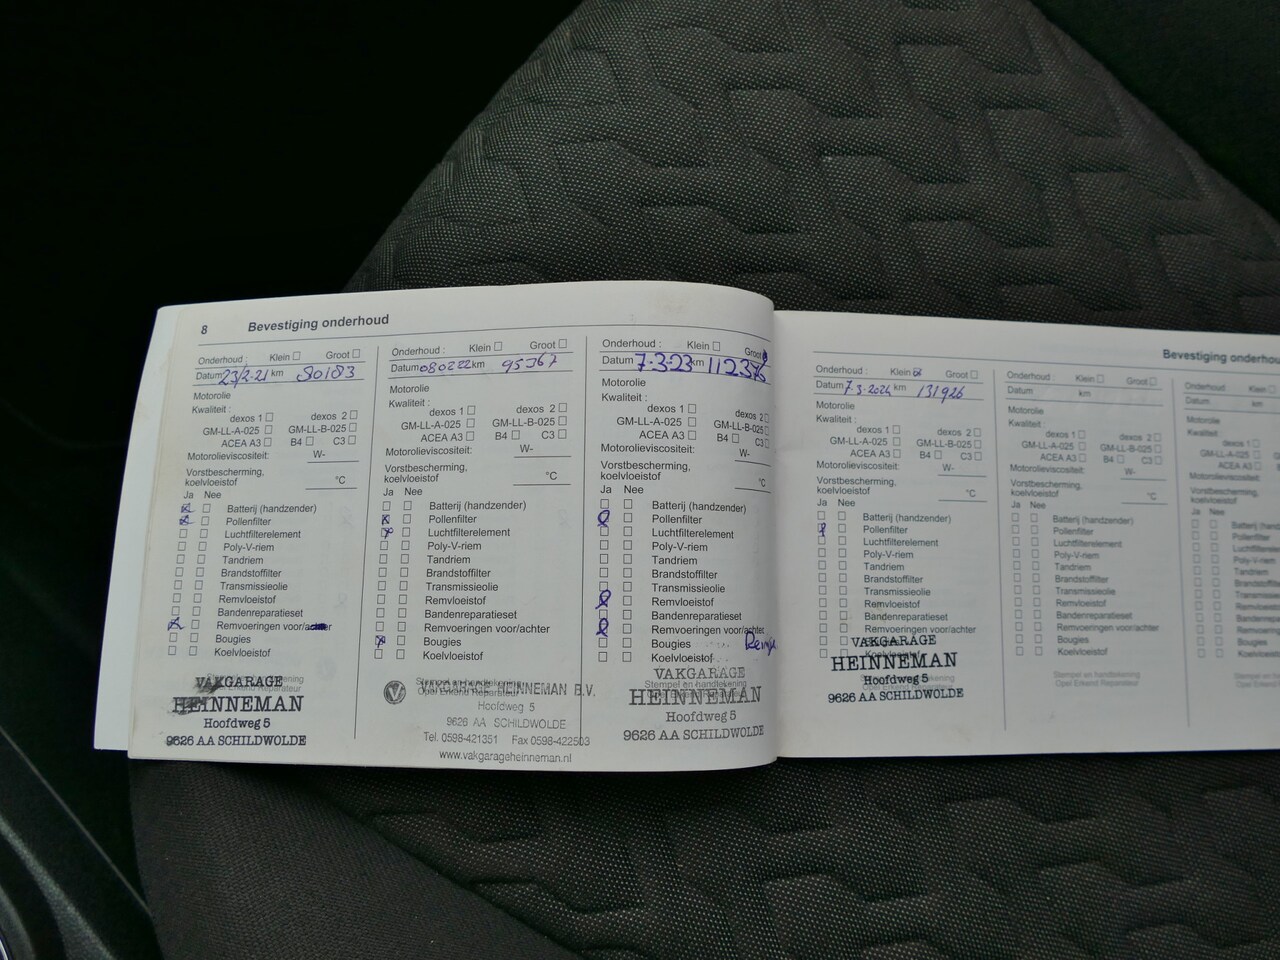 8 Bevestiging onderhoud
Onderhoud : Klein Groot
Datum 23/2-21 km 80183
Motorolie
Kwaliteit :
dexos 1 dexos 2
GM-LL-A-025 GM-LL-B-025
ACEA A3 B4 C3
Motorolieviscositeit: W-
Vorstbescherming,
koelvloeistof °C
Ja Nee
Batterij (handzender)
Pollenfilter
Luchtfilterelement
Poly-V-riem
Tandriem
Brandstoffilter
Transmissieolie
Remvloeistof
Bandenreparatieset
Remvoeringen voor/achter
Bougies
Koelvloeistof
VAKGARAGE
HEINNEMAN
Hoofdweg 5
9626 AA SCHILDWOLDE
Onderhoud : Klein Groot
Datum 080222 km 95367
Motorolie
Kwaliteit :
dexos 1 dexos 2
GM-LL-A-025 GM-LL-B-025
ACEA A3 B4 C3
Motorolieviscositeit: W-
Vorstbescherming,
koelvloeistof °C
Ja Nee
Batterij (handzender)
Pollenfilter
Luchtfilterelement
Poly-V-riem
Tandriem
Brandstoffilter
Transmissieolie
Remvloeistof
Bandenreparatieset
Remvoeringen voor/achter
Bougies
Koelvloeistof
VAKGARAGE HEINNEMAN B.V.
Hoofdweg 5
9626 AA SCHILDWOLDE
Tel. 0598-421351 Fax 0598-422503
www.vakgarageheinneman.nl
Onderhoud : Klein Groot
Datum 7-3-23 km 112376
Motorolie
Kwaliteit :
dexos 1 dexos 2
GM-LL-A-025 GM-LL-B-025
ACEA A3 B4 C3
Motorolieviscositeit: W-
Vorstbescherming,
koelvloeistof °C
Ja Nee
Batterij (handzender)
Pollenfilter
Luchtfilterelement
Poly-V-riem
Tandriem
Brandstoffilter
Transmissieolie
Remvloeistof
Bandenreparatieset
Remvoeringen voor/achter
Bougies
Koelvloeistof
Stempel en handtekening
VAKGARAGE
HEINNEMAN
Hoofdweg 5
9626 AA SCHILDWOLDE
Bevestiging onderhou
Onderhoud : Klein Groot
Datum 7-3-2024 km 131926
Motorolie
Kwaliteit :
dexos 1 dexos 2
GM-LL-A-025 GM-LL-B-025
ACEA A3 B4 C3
Motorolieviscositeit: W-
Vorstbescherming,
koelvloeistof °C
Ja Nee
Batterij (handzender)
Pollenfilter
Luchtfilterelement
Poly-V-riem
Tandriem
Brandstoffilter
Transmissieolie
Remvloeistof
Bandenreparatieset
Remvoeringen voor/achter
Bougies
Koelvloeistof
VAKGARAGE
HEINNEMAN
Hoofdweg 5
9626 AA SCHILDWOLDE
Onderhoud : Klein Groot
Datum km
Motorolie
Kwaliteit :
dexos 1 dexos 2
GM-LL-A-025 GM-LL-B-025
ACEA A3 B4 C3
Motorolieviscositeit: W-
Vorstbescherming,
koelvloeistof °C
Ja Nee
Batterij (handzender)
Pollenfilter
Luchtfilterelement
Poly-V-riem
Tandriem
Brandstoffilter
Transmissieolie
Remvloeistof
Bandenreparatieset
Remvoeringen voor/achter
Bougies
Koelvloeistof
Stempel en handtekening
Opel Erkend Reparateur
Onderhoud : Klein
Datum km
Motorolie
Kwaliteit :
dexos 1
GM-LL-A-025
ACEA A3
Motorolieviscositeit:
Vorstbescherming,
koelvloeistof
Ja Nee